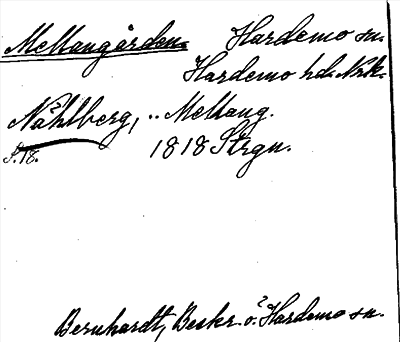 Mellangården. Hardemo sn.
Hardemo hd. Nrk.
Nåhlberg, .. Mellang.
S. 18. 1818 Strgn.
Bernhardt, Beskr. ö. Hardemo sn.